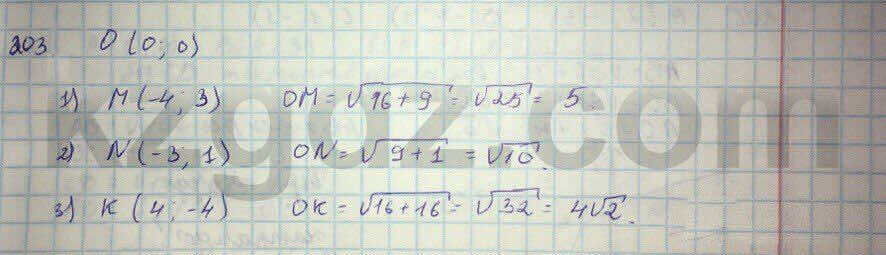 203. O (0; 0)
1) M (-4; 3) OM = √16+9 = √25 = 5.
2) N (-3; 1) ON = √9+1 = √10.
3) K (4; -4) OK = √16+16 = √32 = 4√2.
kzgoz.com